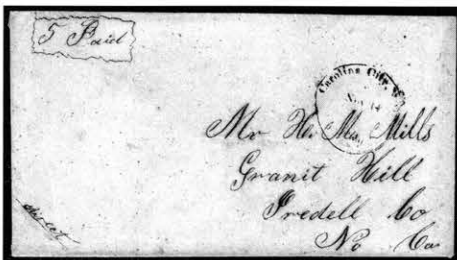 5 Paid
Carolina City,
Mr H. M. Mills
Granit Hill
Iredell Co
No Ca